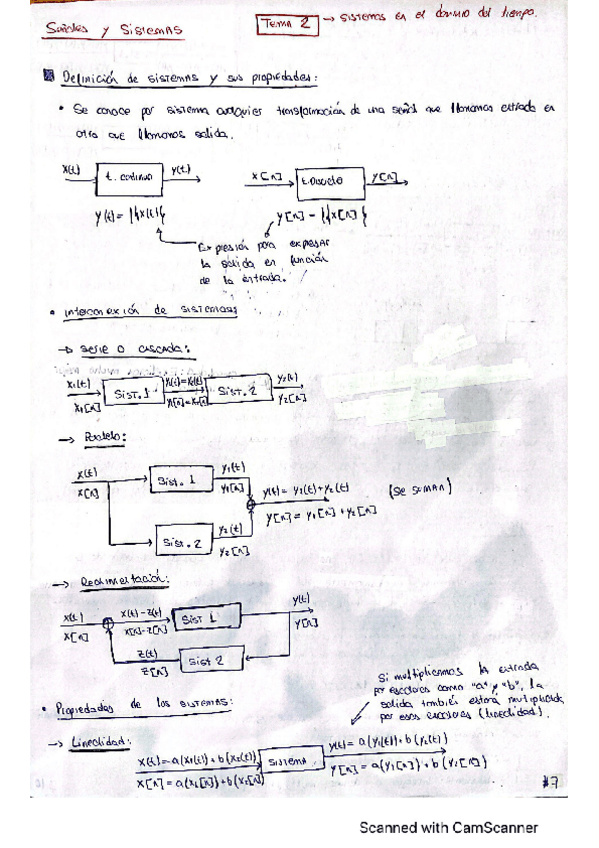 Señales y Sistemas
Tema 2 → sistemas en el dominio del tiempo.
Definición de sistemas y sus propiedades:
• Se conoce por sistema cualquier transformación de una señal que llamamos entrada en
otra que llamamos salida.
x(t) t. continuo y(t) x[n] t. Discreto y[n]
y(t) = {x(t)} y[n] = {x[n]}
Expresión para expresar
la salida en función
de la entrada.
• interconexión de sistemas
→ serie o cascada:
x1(t) y1(t)=x2(t) y2(t)
x1[n] Sist. 1 y1[n]=x2[n] Sist. 2 y2[n]
→ Paralelo:
x(t) Sist. 1 y1(t)
x[n] y1[n] y(t) = y1(t)+y2(t) (se suman)
y[n] = y1[n]+y2[n]
Sist. 2 y2(t)
y2[n]
→ Realimentación:
x(t) x(t)-z(t) Sist 1 y(t)
x[n] x[n]-z[n] y[n]
z(t) Sist 2
z[n]
Si multiplicamos la entrada
por escalares como "a" y "b", la
salida también estará multiplicada
por esos escalares (linealidad).
• Propiedades de los sistemas:
→ Linealidad:
x(t)=a(x1(t))+b(x2(t)) Sistema y(t)=a(y1(t))+b(y2(t))
x[n]=a(x1[n])+b(x2[n]) y[n]=a(y1[n])+b(y2[n])
#7
Scanned with CamScanner